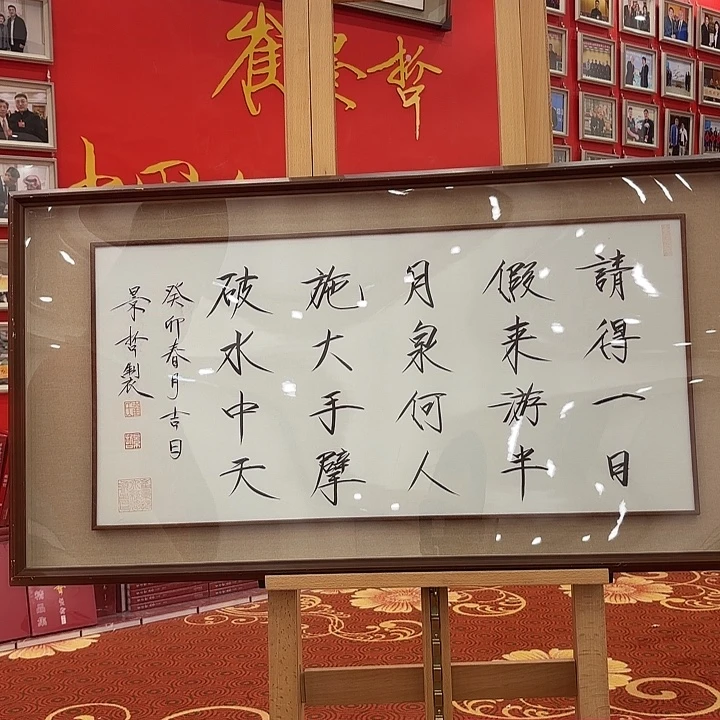 崔景哲
請得一日
假来游半
月泉何人
施大手擘
破水中天
癸卯春月吉日
景哲製
精品集